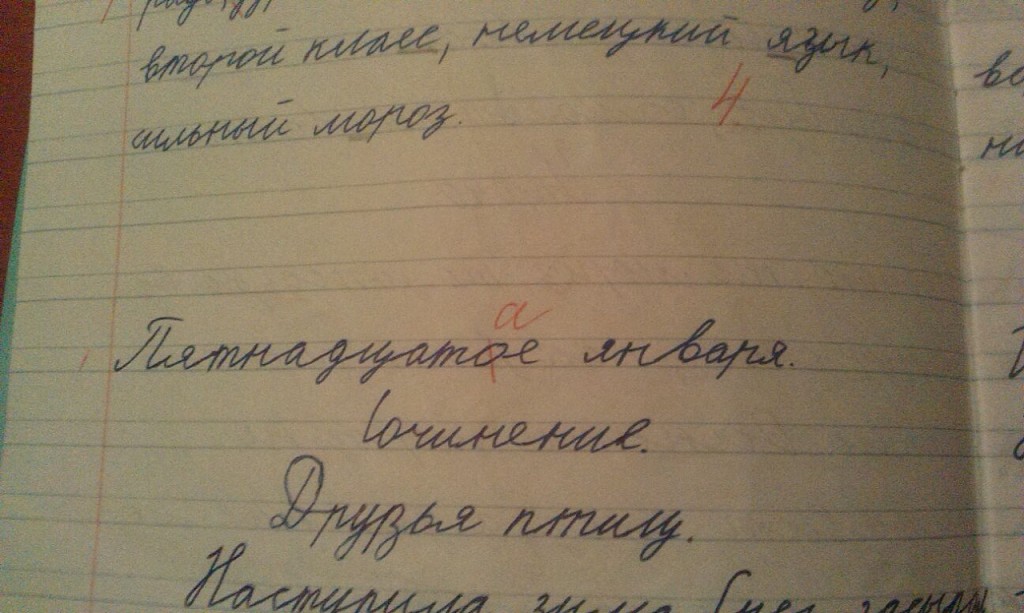 второй класс, немецкий язык,
сильный мороз.
4
а
Пятнадцатое января.
Сочинение.
Друзья птиц.
Наступила зима. Снег